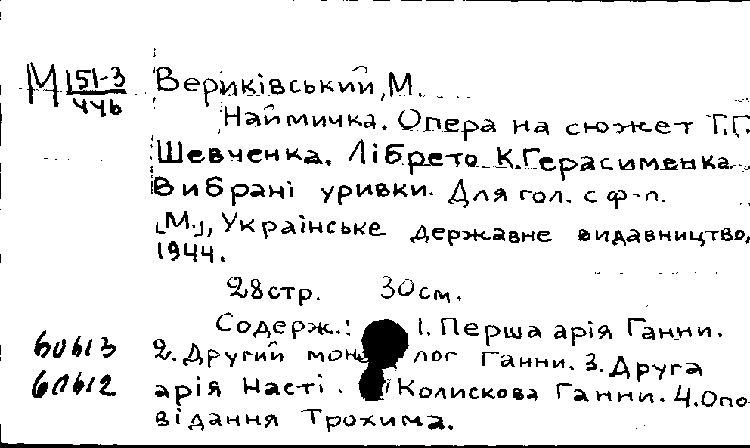 М 151-3 Вериківський, М.
446
Наймичка. Опера на сюжет Т.Г.
Шевченка. Лібрето К. Герасименка
Вибрані уривки. Для гол. с ф-п.
[М.], Українське державне видавництво,
1944.
28 стр. 30 см.
Содерж.: 1. Перша арія Ганни.
60613 2. Другий моно лог Ганни. 3. Друга
60612 арія Насті. Колискова Ганни. 4. Опо
відання Трохима.